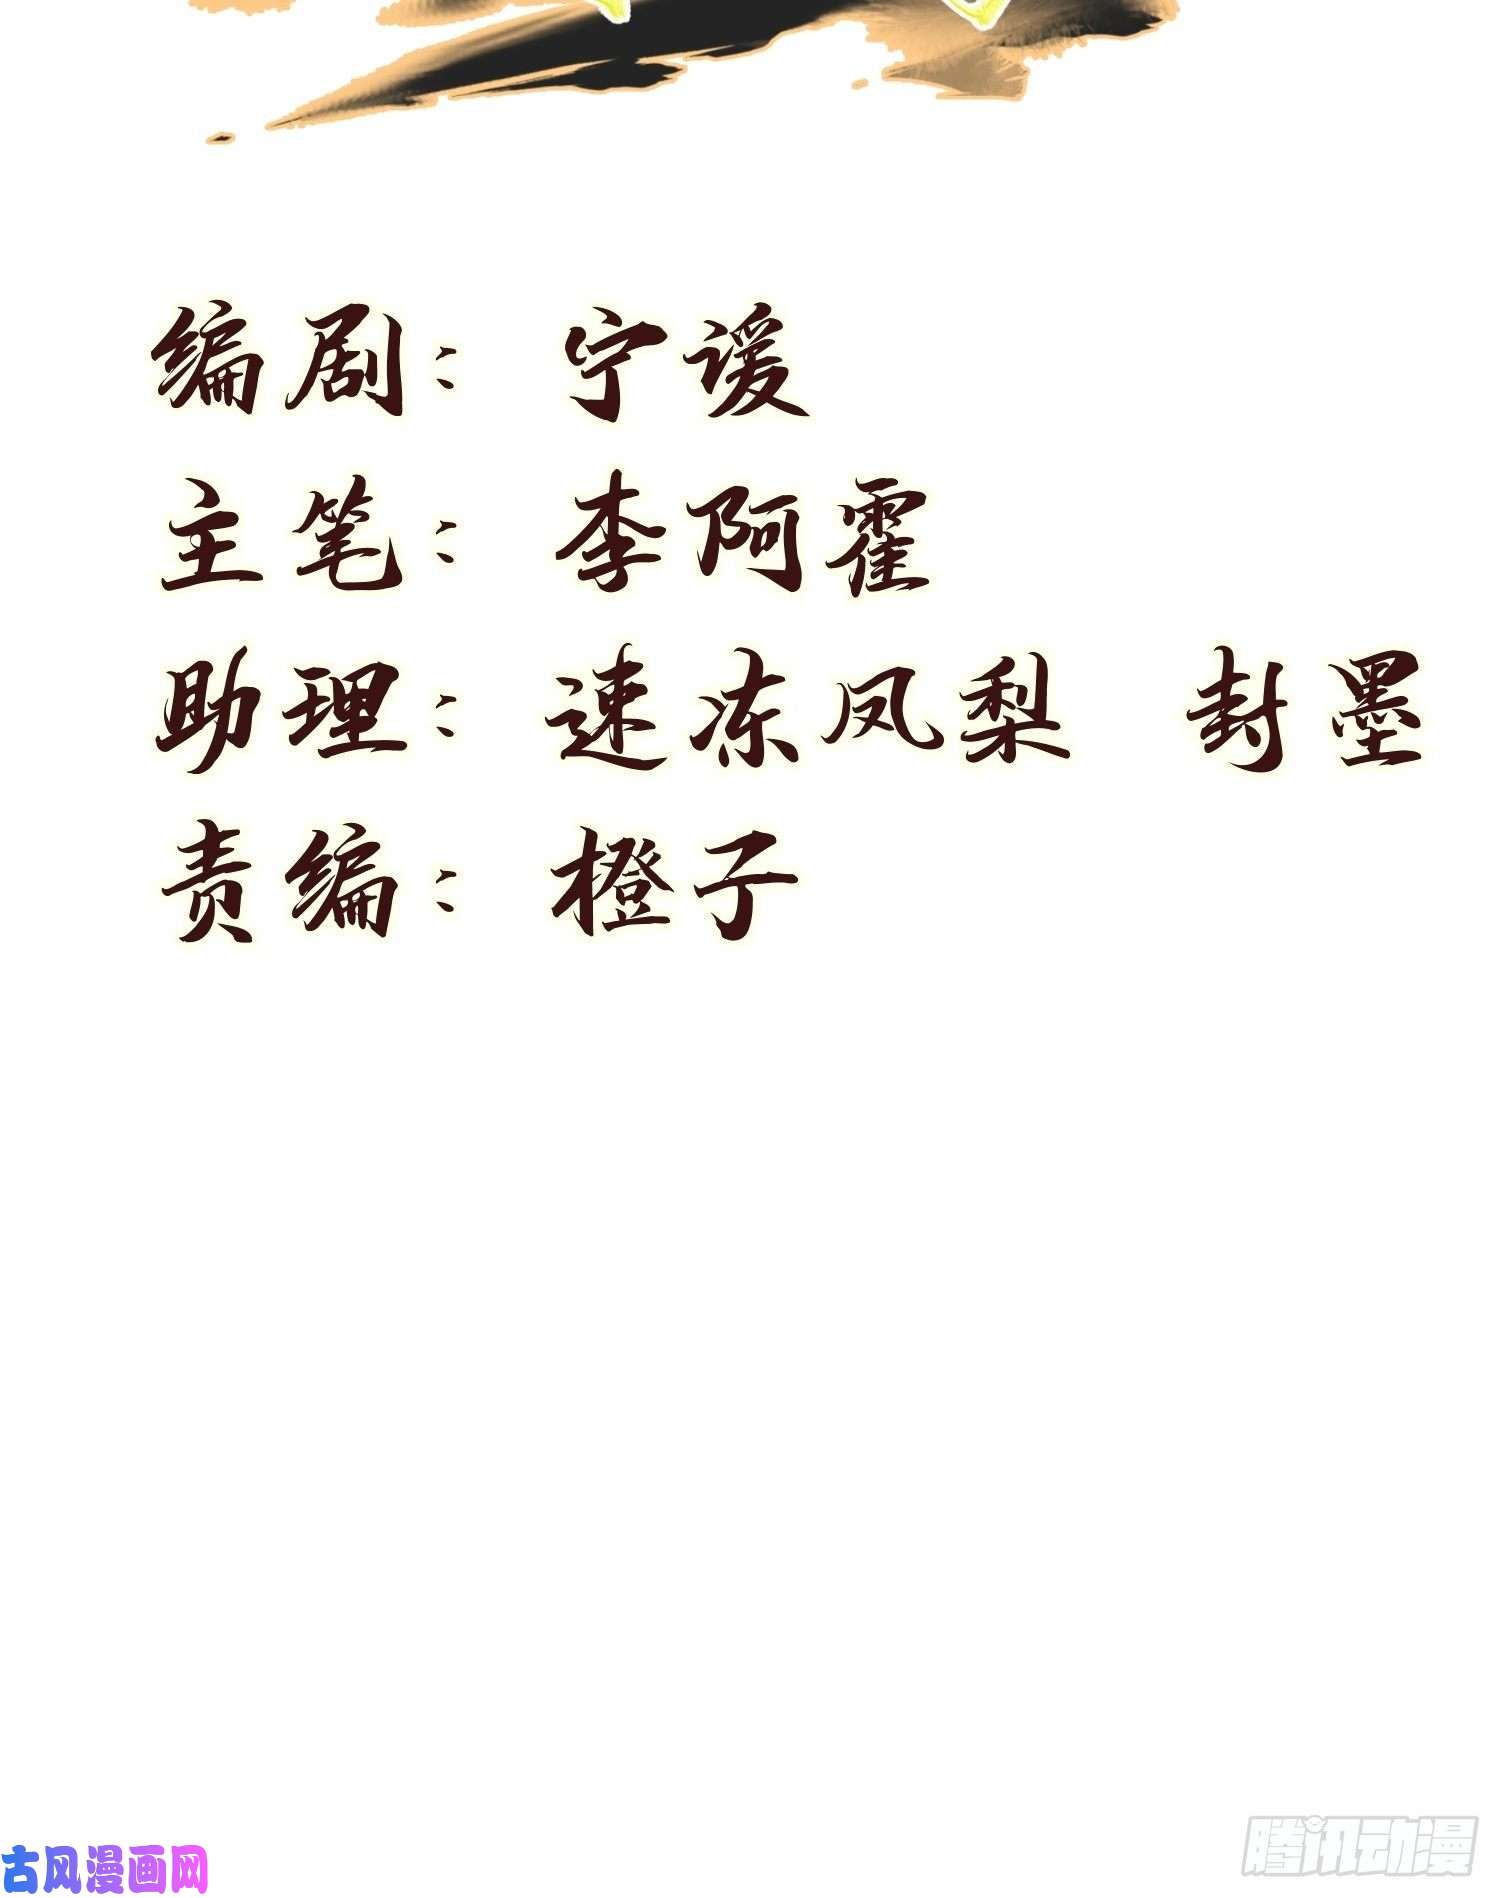 编剧：宁谖
主笔：李阿霍
助理：速冻凤梨 封墨
责编：橙子
古风漫画网
腾讯动漫